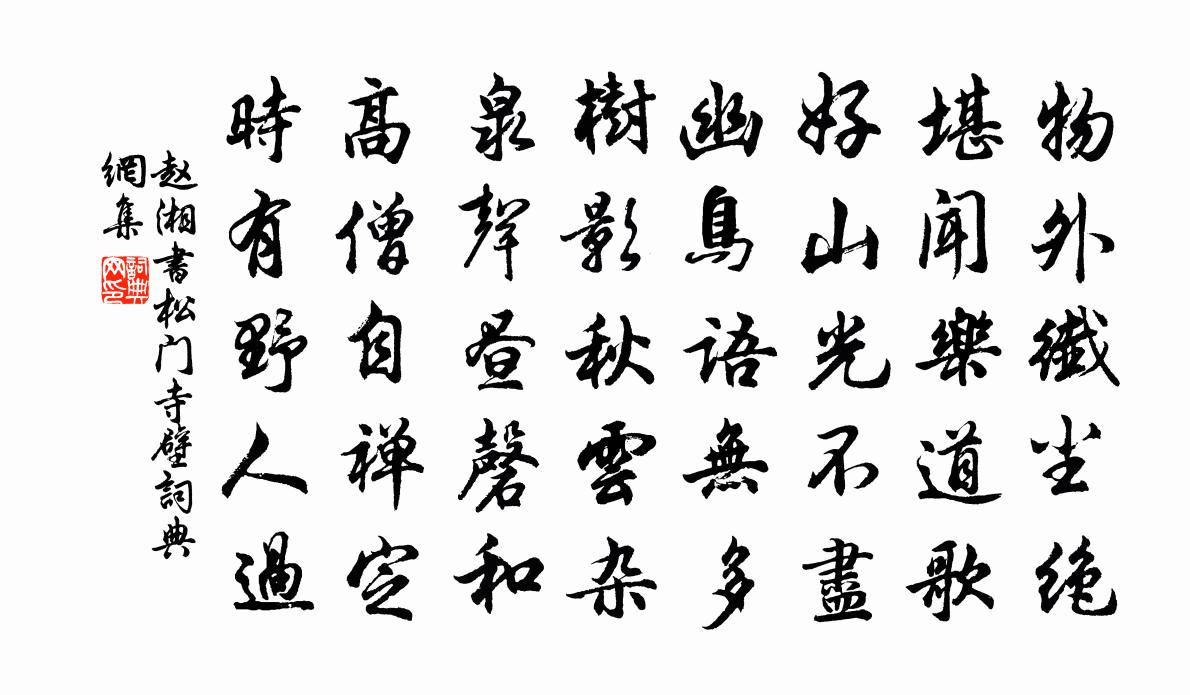 物外纖尘绝
堪聞樂道歌
好山光不盡
幽鳥語無多
樹影秋雲杂
泉聲昼磬和
高僧自禅定
時有野人過
赵湘書松门寺壁詞典
網集
詞典
网印